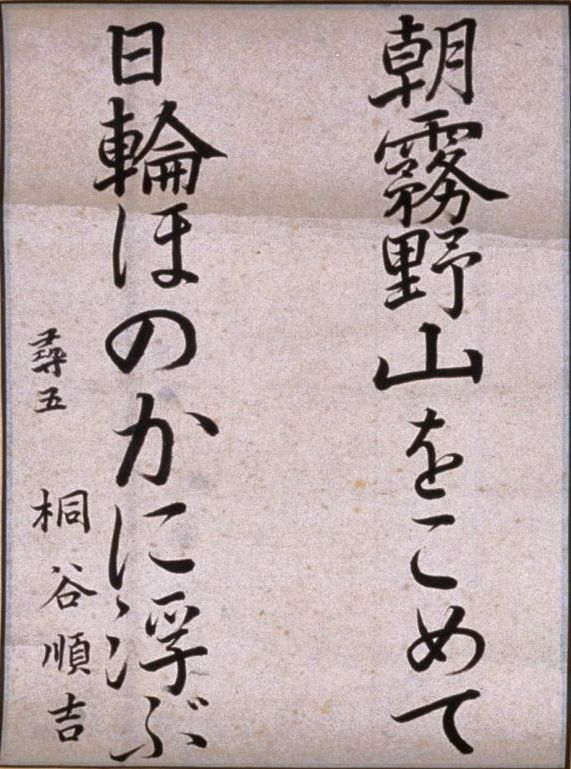 朝霧野山をこめて
日輪ほのかに浮ぶ
尋五 桐谷順吉